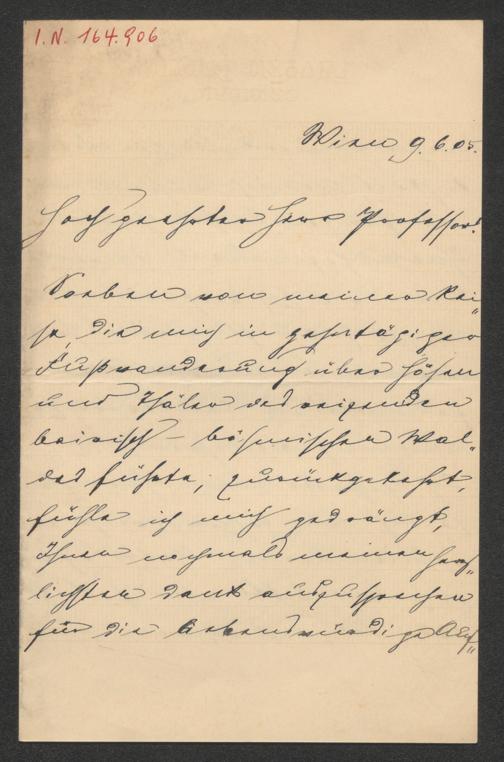 I.N. 164.906
Wien 9.6.05.
Hoch geehrter Herr Professor!
Soeben von meiner Rei„
se, die mich in zehntägiger
Fußwanderung über Höhen
und Thäler des reizenden
bairisch-böhmischen Wal„
des führte, zurückgekehrt,
fühle ich mich gedrängt,
Ihnen nochmals meinen herz„
lichsten Dank auszusprechen
für die liebenswürdige Auf„